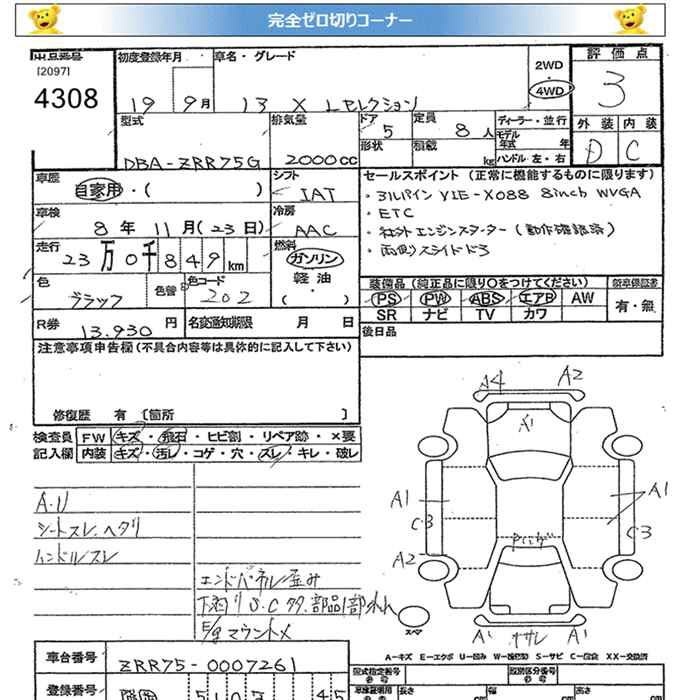 完全ゼロ切りコーナー
出品番号
[2097]
4308
初度登録年月
19 9月
車名・グレード
13 X Lセレクション
2WD
4WD
評価点
3
外装 内装
D C
型式
DBA-ZRR75G
排気量
2000cc
ドア
5
定員
8人
形状
積載
kg
ディーラー・並行
モデル
年式 年
ハンドル 左・右
車歴
自家用・( )
シフト
IAT
車検
8年 11月(23日)
冷房
AAC
走行
23万0千849km
燃料
ガソリン
軽油
・( )
色
ブラック
色替
色コード
202
R券 13.930 円
名変通知期限 月 日
セールスポイント (正常に機能するものに限ります)
・アルパイン VIE-X088 8inch WVGA
・ETC
・社外エンジンスターター(動作確認済)
・両側スライドドア
装備品(純正品に限り○をつけてください)
PS PW ABS エアB AW
SR ナビ TV カワ
新車保証書
有・無
後日品
注意事項申告欄(不具合内容等は具体的に記入して下さい)
修復歴 有 [箇所 ]
検査員 FW キズ・飛石・ヒビ割・リペア跡・×要
記入欄 内装 キズ・汚レ・コゲ・穴・スレ・キレ・破レ
A.U
シートスレ.ヘタリ
ハンドルスレ
エンドパネル歪み
下廻り S.C クタ.部品1部外れ
E/gマウント×
A4 A2
A1
A1 A1
C.3 C3
A2
スペア
A1 ササレ A1
A-キズ E-エクボ U-凹み W-補修跡 S-サビ C-腐食 XX-交換済
車台番号 ZRR75-0007261
登録番号
型式指定番号 類別区分番号
長さ 幅 高さ
cm cm cm